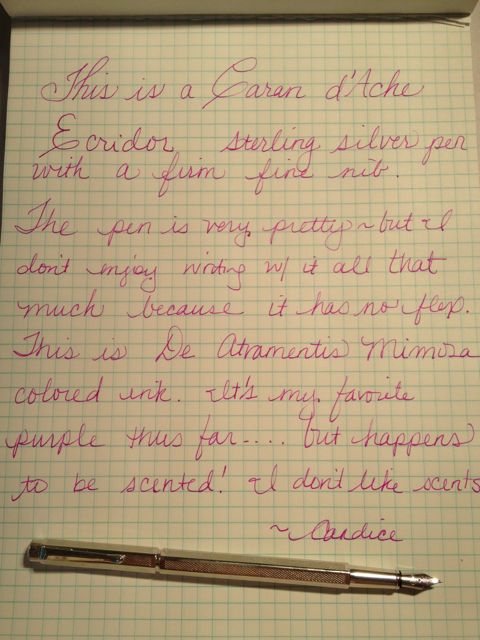 This is a Caran d'Ache
Ecridor sterling silver pen
with a firm fine nib.
The pen is very pretty~but I
don't enjoy writing w/ it all that
much because it has no flex.
This is De Atramentis Mimosa
colored ink. It's my favorite
purple thus far.... but happens
to be scented! I don't like scents
~Candice